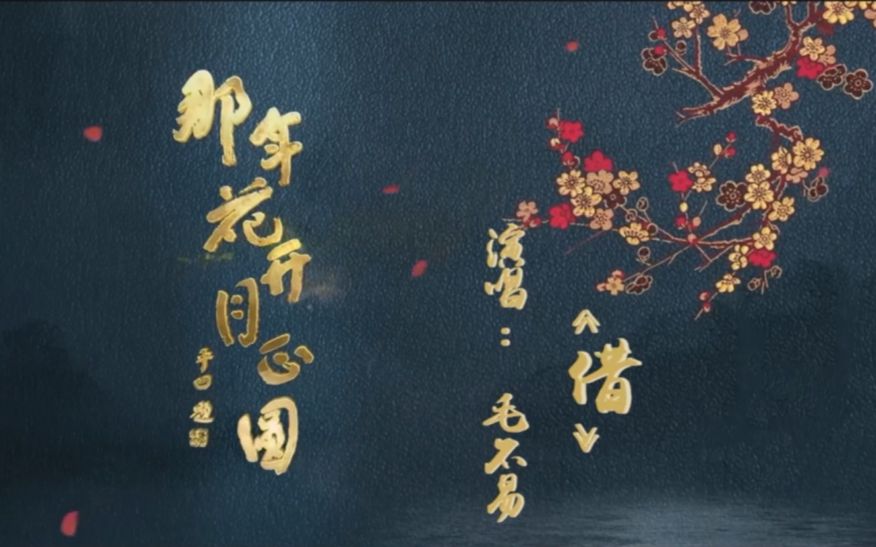 那年花开月正圆
《借》
演唱：毛不易